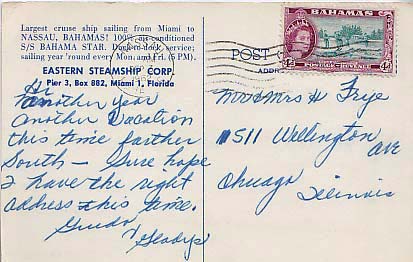 Largest cruise ship sailing from Miami to
NASSAU, BAHAMAS! 100% air-conditioned
S/S BAHAMA STAR. Dock-to-dock service;
sailing year 'round every Mon. and Fri. (5 PM).
EASTERN STEAMSHIP CORP.
Pier 3, Box 882, Miami 1, Florida
Hi
another year
another Vacation
this time farther
South - Sure hope
I have the right
address this time.
Guido
& Gladys
POST
ADDR
BAHAMAS
POSTAGE & REVENUE
4d 4d
Mrs H Frye
1511 Wellington
Ave
Chicago
Illinois